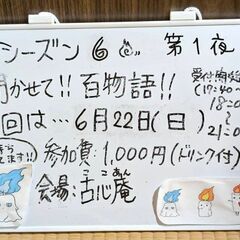 シーズン6 第1夜
聞かせて!! 百物語!!
受付開始
(17:40~
18:20
回は… 6月22日(日)
21:0
参加費:1,000円(ドリンク付)
ます!!
会場:古心庵
ここあん